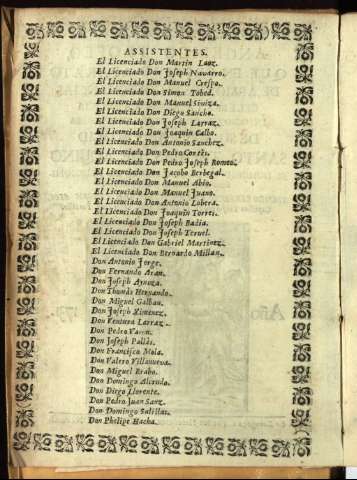 ASSISTENTES.
El Licenciado Don Martin Laoz.
El Licenciado Don Joseph Navarro.
El Licenciado Don Manuel Crespo.
El Licenciado Don Simon Tobed.
El Licenciado Don Manuel
El Licenciado Don Diego Sancho.
El Licenciado Don Joseph Larraz.
El Licenciado Don Joaquin Calbo.
El Licenciado Don Antonio Sanchez.
El Licenciado Don Pedro
El Licenciado Don Pedro Joseph Romeo.
El Licenciado Don Jacobo Berbegal.
El Licenciado Don Manuel Abio.
El Licenciado Don Manuel Juane.
El Licenciado Don Antonio Lobera.
El Licenciado Don Joaquin Torres.
El Licenciado Don Joseph Badia.
El Licenciado Don Joseph Teruel.
El Licenciado Don Gabriel Martinez.
El Licenciado Don Bernardo Millan.
Don Antonio Jorge.
Don Fernando Aran.
Don Joseph
Don Thomàs Hernando.
Don Miguel Galban.
Don Joseph Ximenez.
Don Ventura Larraz.
Don Pedro
Don Joseph Pallàs.
Don Francisco Mola.
Don Valero Villanueva.
Don Miguel Brabo.
Don Domingo
Don Diego Llorente.
Don Pedro Juan Sanz.
Don Domingo Salillas.
Don Phelipe Hacha.